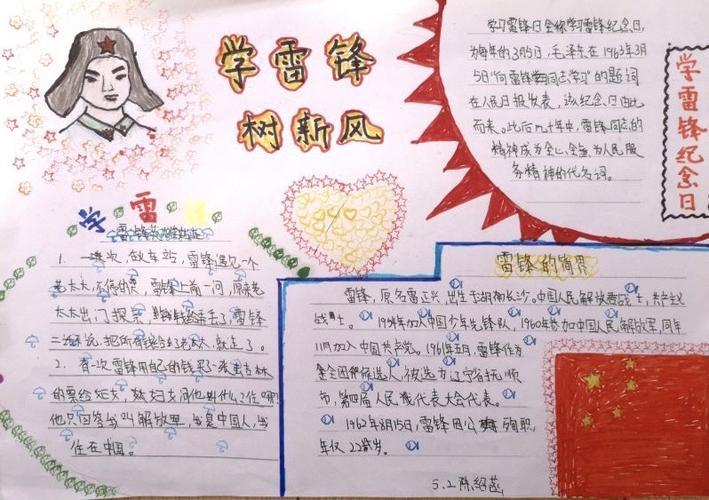 学雷锋
树新风
学习雷锋日全称学习雷锋纪念日,
为每年的3月5日,毛泽东在1963年3月
5日"向雷锋同志学习"的题词
在人民日报发表,该纪念日由此
而来。此后几十年中,雷锋同志的
精神成为全心全意为人民服
务精神的代名词。
学雷锋纪念日
学雷锋
1. 一次,在车站,雷锋遇见一个
老太太,雷锋上前一问,原来老
太太出门探亲,雷锋
二话不说,把所有钱给了老太太,就走了。
2. 有一次雷锋用自己的钱买了一张去吉林
的票给妇女,妇女问他叫什么?住哪?
他只回答我叫解放军,我是中国人,我
住在中国。
雷锋的简界
雷锋,原名雷正兴,出生于湖南长沙,中国人民解放军战士,共产主义
战士。1954年加入中国少年先锋队,1960年参加中国人民解放军,同年
11月加入中国共产党。1961年5月,雷锋作为
候选人,被选为辽宁省抚顺
市,第四届人民代表大会代表。
1962年8月15日,雷锋因公殉职,
年仅22岁。
5.2 陈绍